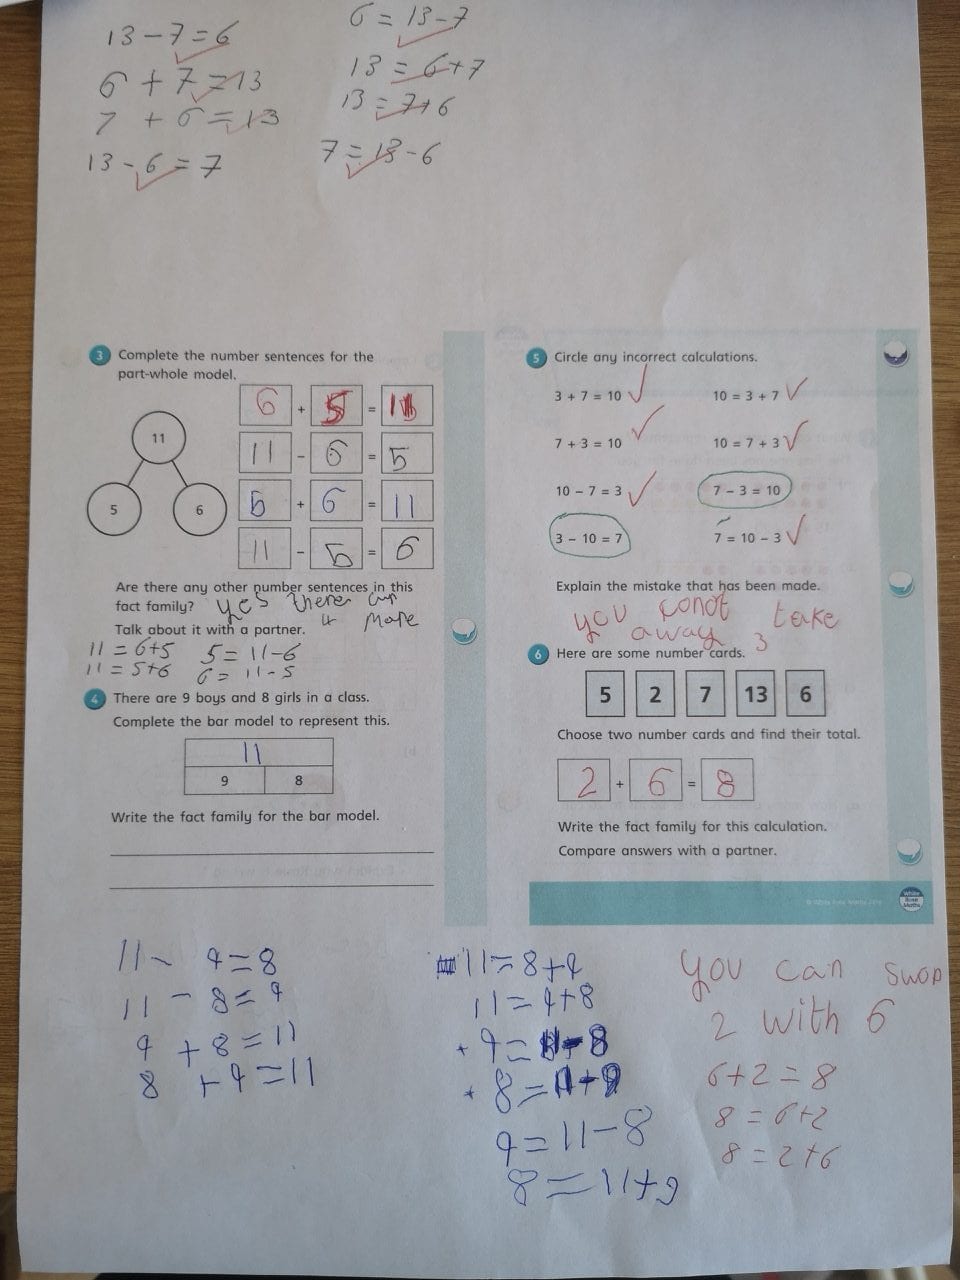 13 - 7 = 6
6 + 7 = 13
7 + 6 = 13
13 - 6 = 7
6 = 13 - 7
13 = 6 + 7
13 = 7 + 6
7 = 13 - 6
3 Complete the number sentences for the
part-whole model.
11
5 6
6 + 5 = 11
11 - 6 = 5
5 + 6 = 11
11 - 5 = 6
Are there any other number sentences in this
fact family? yes there are
4 more
Talk about it with a partner.
11 = 6+5 5 = 11-6
11 = 5+6 6 = 11-5
4 There are 9 boys and 8 girls in a class.
Complete the bar model to represent this.
11
9 8
Write the fact family for the bar model.
11 - 9 = 8
11 - 8 = 9
9 + 8 = 11
8 + 9 = 11
11 = 8+9
11 = 9+8
9 = 11-8
8 = 11+9
9 = 11-8
8 = 11+9
5 Circle any incorrect calculations.
3 + 7 = 10 10 = 3 + 7
7 + 3 = 10 10 = 7 + 3
10 - 7 = 3 7 - 3 = 10
3 - 10 = 7 7 = 10 - 3
Explain the mistake that has been made.
you conot take
away 3
6 Here are some number cards.
5 2 7 13 6
Choose two number cards and find their total.
2 + 6 = 8
Write the fact family for this calculation.
Compare answers with a partner.
White Rose Maths
you can swap
2 with 6
6+2 = 8
8 = 6+2
8 = 2+6